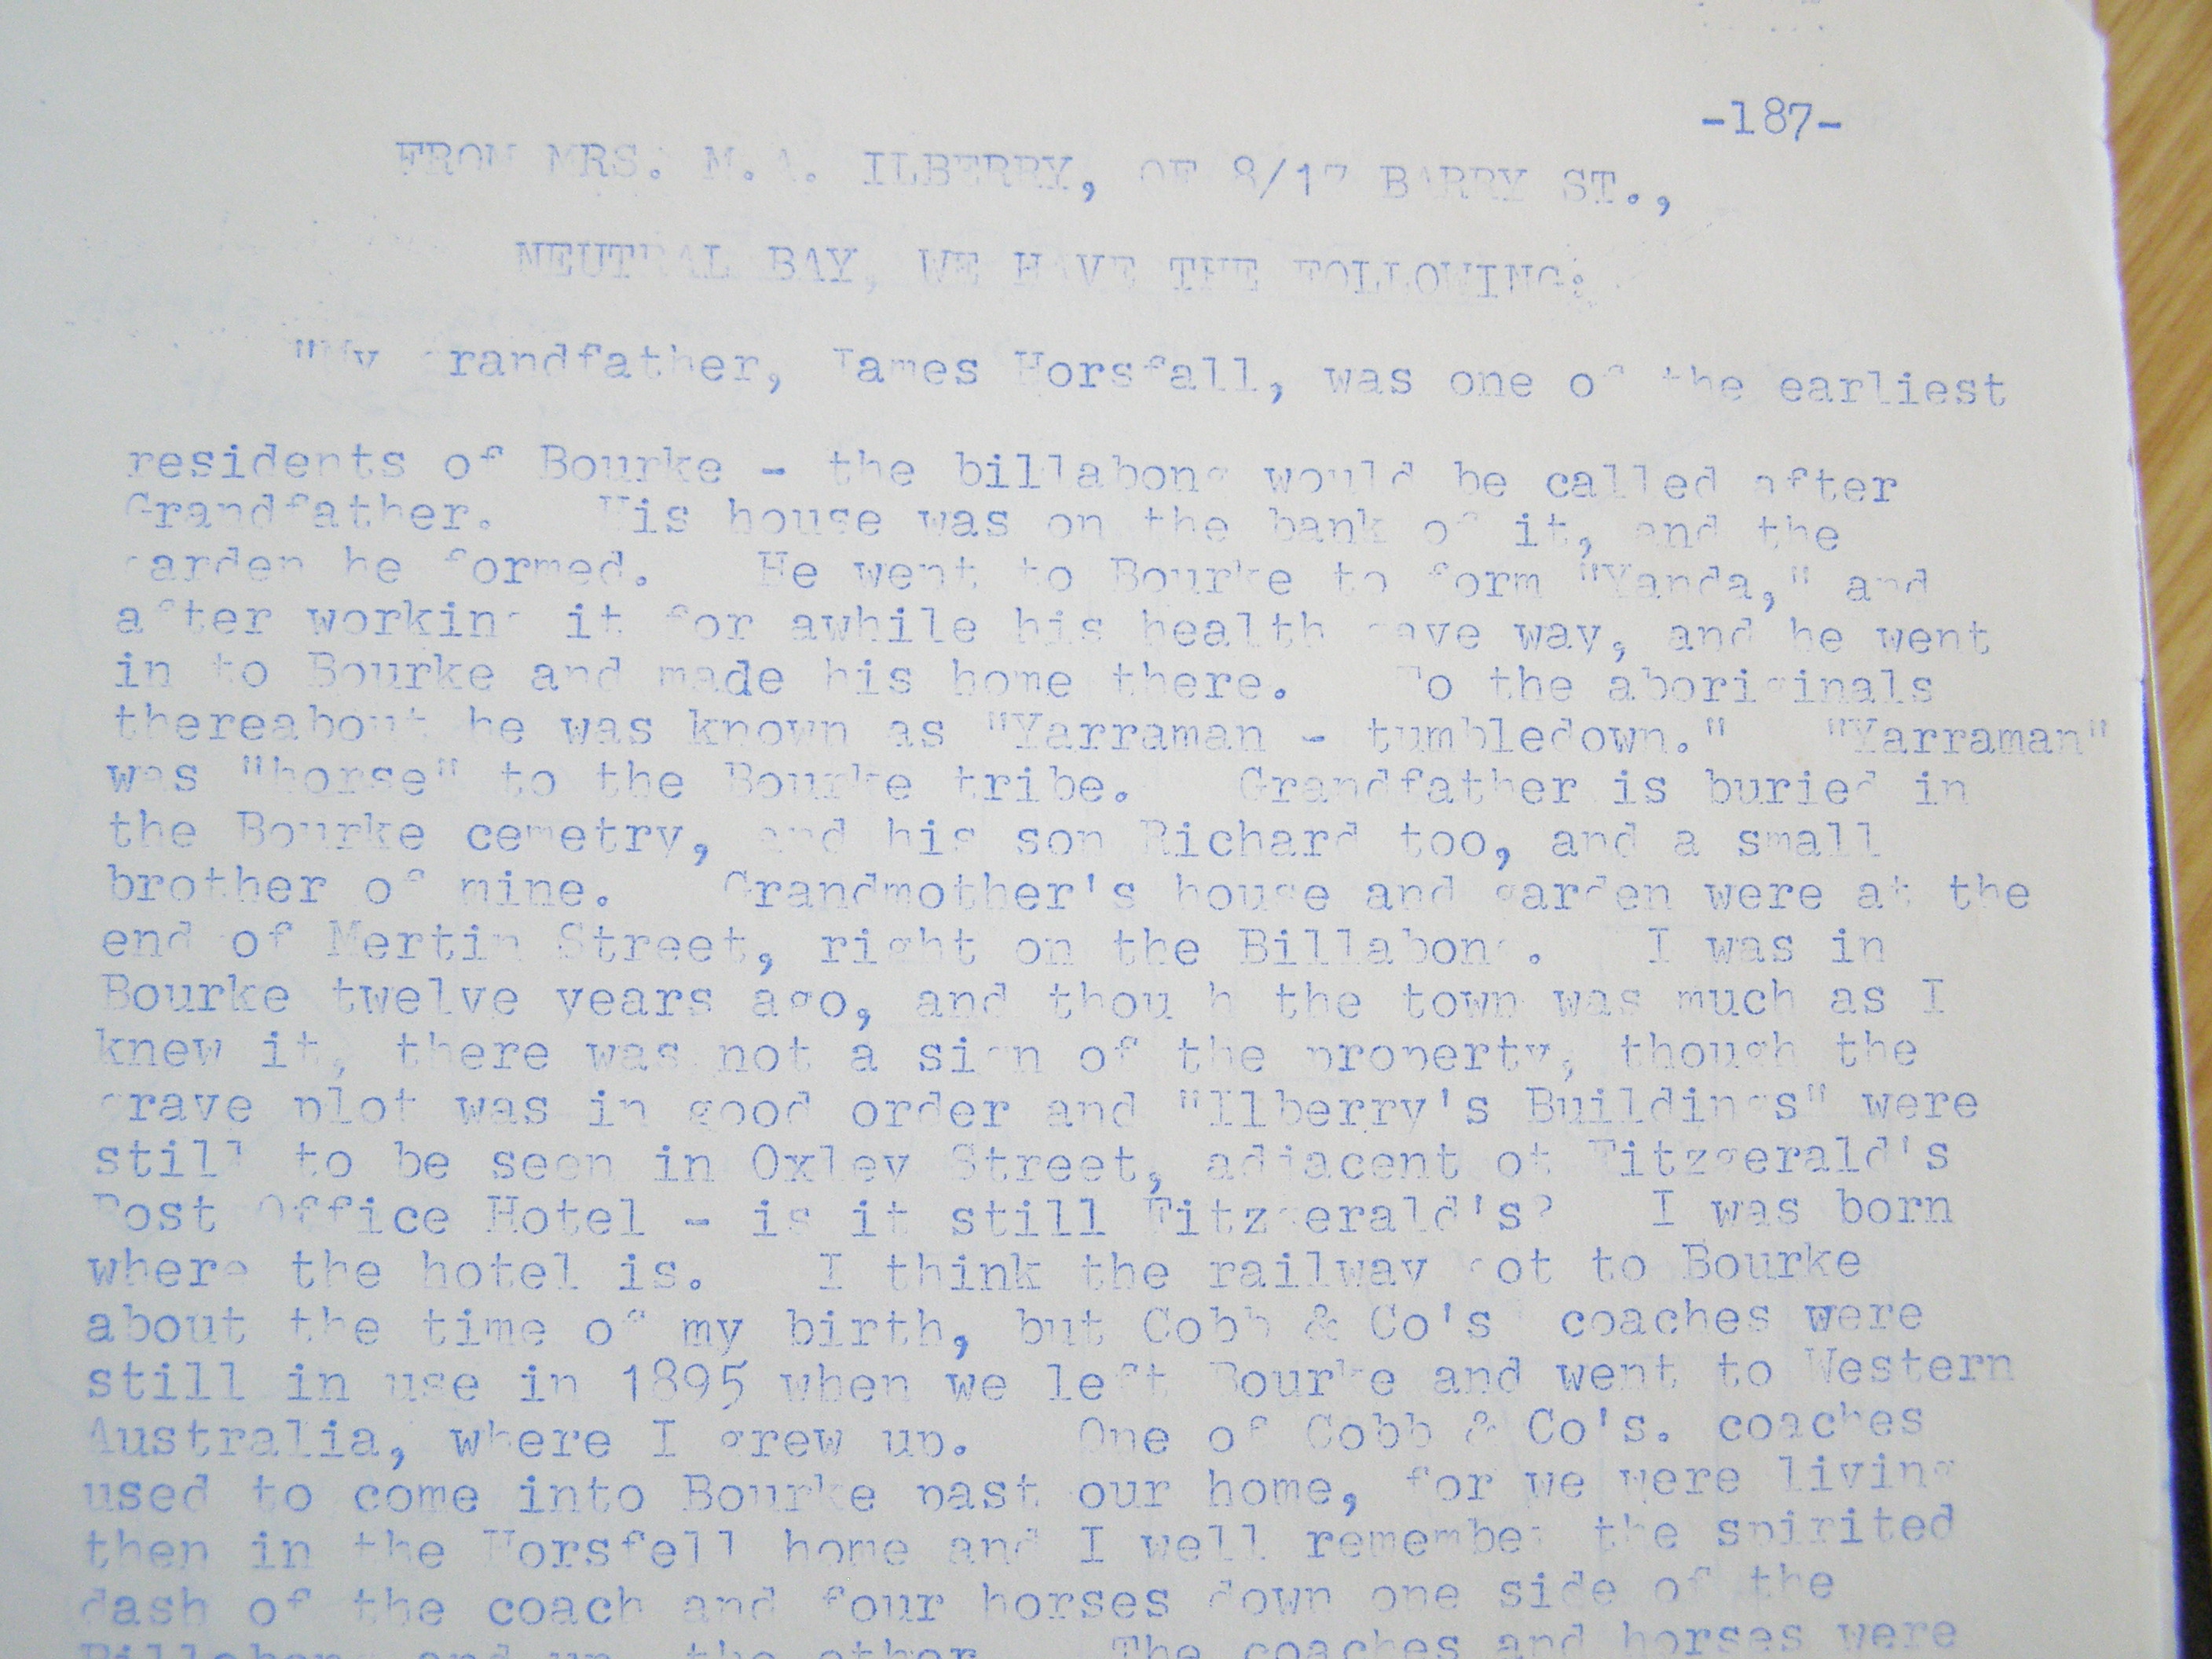 -187-
FROM MRS. M.A. ILBERRY, OF 8/17 BARRY ST.,
NEUTRAL BAY, WE HAVE THE FOLLOWING:
"My Grandfather, James Horsfall, was one of the earliest
residents of Bourke - the billabong would be called after
Grandfather. His house was on the bank of it, and the
garden he formed. He went to Bourke to form "Yanda," and
after working it for awhile his health gave way, and he went
in to Bourke and made his home there. To the aboriginals
thereabout he was known as "Yarraman - tumbledown." "Yarraman"
was "horse" to the Bourke tribe. Grandfather is buried in
the Bourke cemetry, and his son Richard too, and a small
brother of mine. Grandmother's house and garden were at the
end of Mertin Street, right on the Billabong. I was in
Bourke twelve years ago, and though the town was much as I
knew it, there was not a sign of the property, though the
grave plot was in good order and "Ilberry's Buildings" were
still to be seen in Oxley Street, adjacent ot Fitzgerald's
Post Office Hotel - is it still Fitzgerald's? I was born
where the hotel is. I think the railway got to Bourke
about the time of my birth, but Cobb & Co's coaches were
still in use in 1895 when we left Bourke and went to Western
Australia, where I grew up. One of Cobb & Co's. coaches
used to come into Bourke past our home, for we were living
then in the Horsfell home and I well remember the spirited
dash of the coach and four horses down one side of the
Billabong and up the other. The coaches and horses were